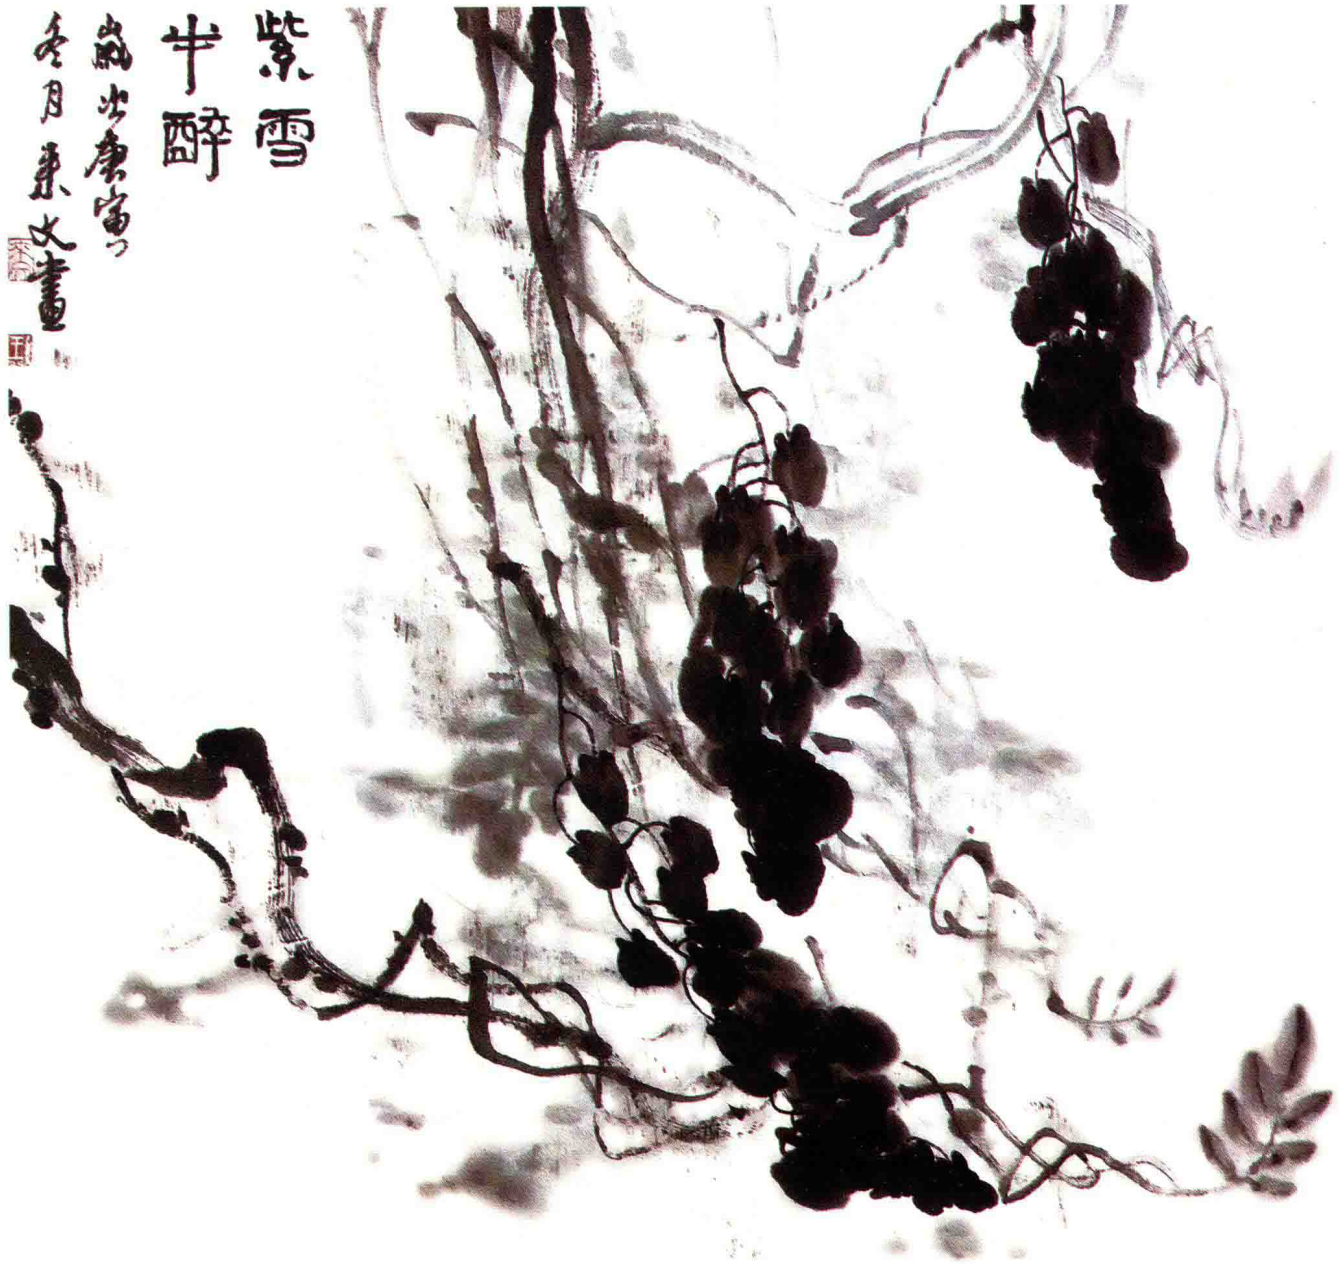 紫雪
半醉
歲次庚寅
冬月來文畫